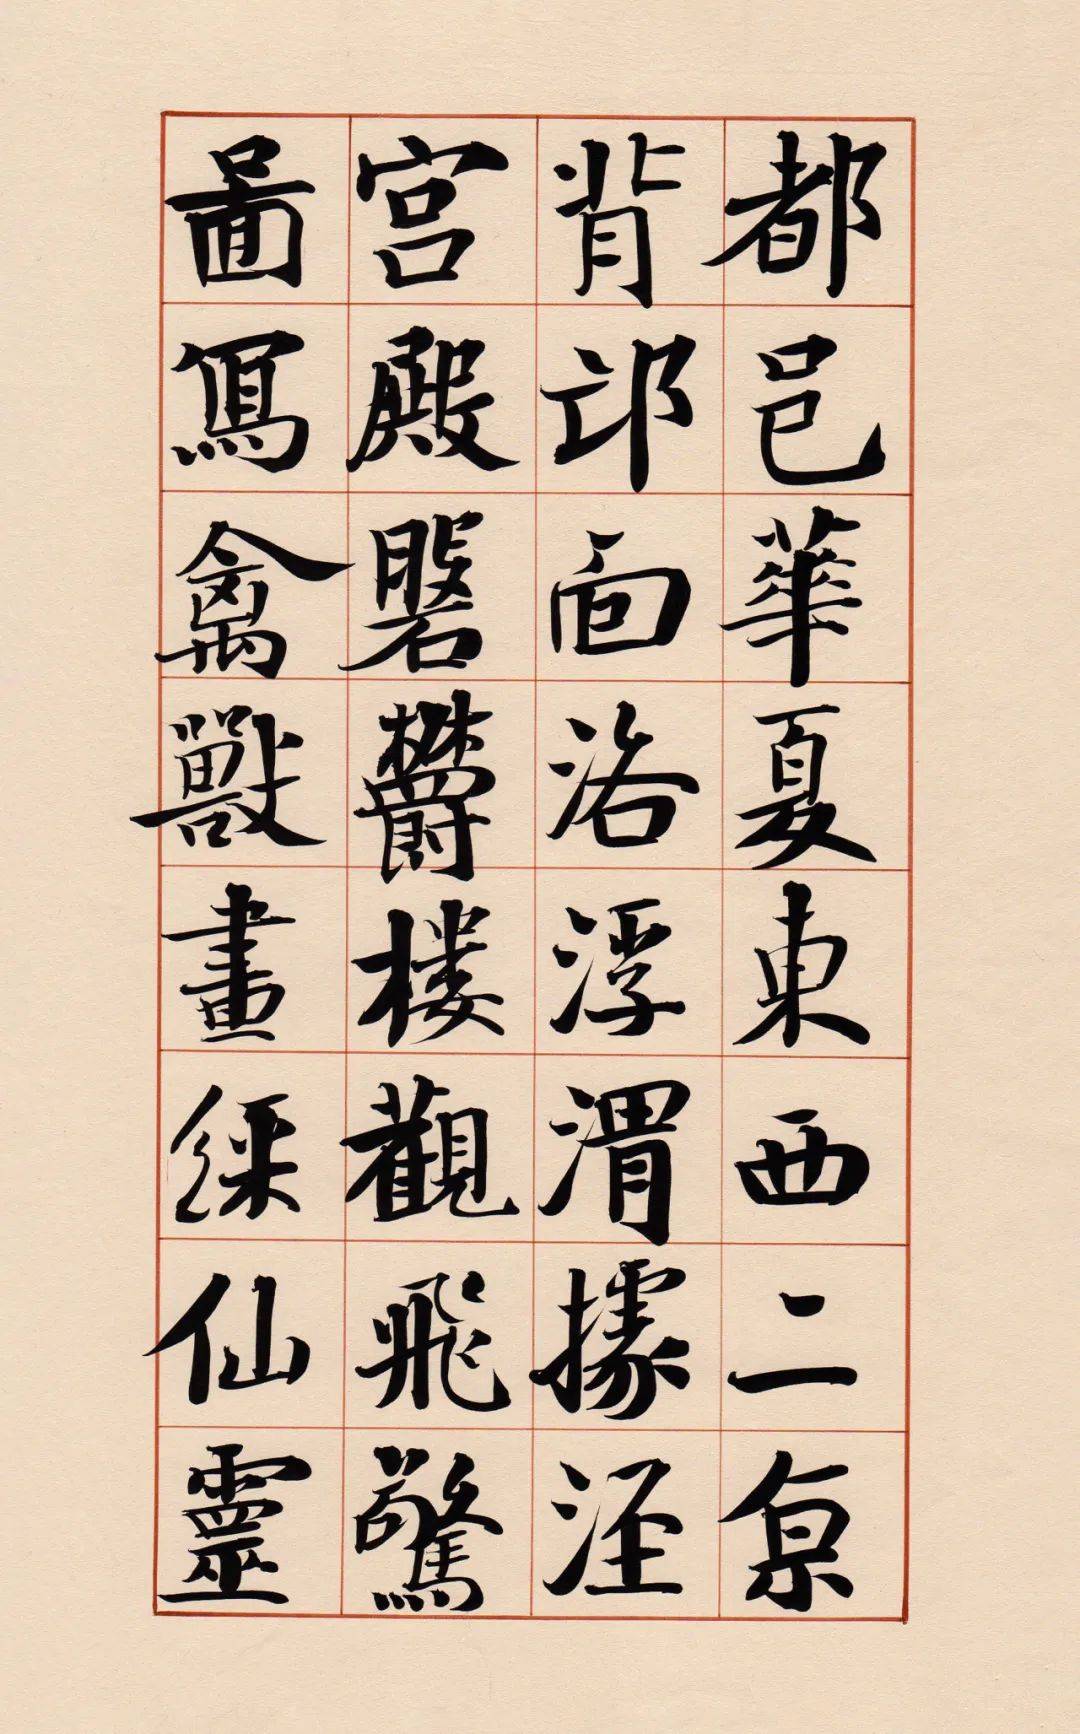 都邑華夏東西二京
背邙面洛浮渭據涇
宮殿磐鬱楼觀飛驚
啚寫禽獸畫綵仙靈